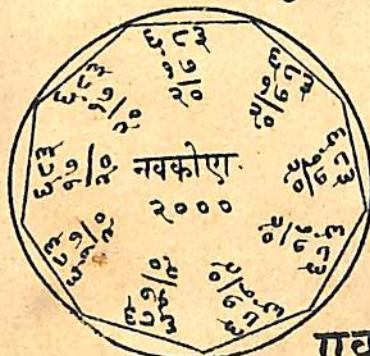 ६८३
१७/२०
६८३
१७/२०
६८३
१७/२०
६८३
१७/२०
६८३
१७/२०
६८३
१७/२०
६८३
१७/२०
६८३
१७/२०
६८३
१७/२०
नवकोण.
२०००